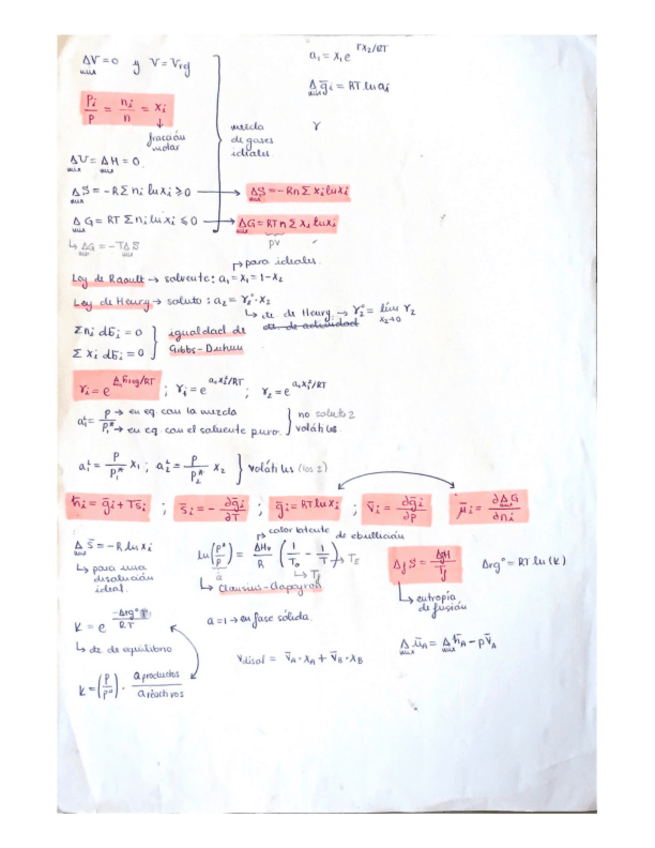 ΔV=0 y V=Vrg
mix
Pi/P = ni/n = xi
↓
fracción
molar
ΔU=ΔH=0.
mix mix
mezcla
de gases
ideales.
a₁ = x₁ e^(rx₂/RT)
Δ ḡi = RT ln ai
mix
γ
ΔS = -RΣ ni lnxi ≥ 0 → ΔS=-Rn Σ xi lnxi
mix mix
ΔG = RT Σ ni lnxi ≤ 0 → ΔG=RTn Σ xi lnxi
mix mix
PV
↳ ΔG = -TΔS
mix mix
↱ para ideales.
Ley de Raoult → solvente: a₁=x₁=1-x₂
Ley de Henry → soluto: a₂=γ₂°·x₂
↳ cte. de Henry. → γ₂° = lím γ₂
x₂→0
cte. de actividad
Σni db̄i = 0
Σ xi db̄i = 0
igualdad de
Gibbs-Duhem
γi = e^(Δ h̄ixg/RT) ; γ₁ = e^(a₀x₂²/RT) ; γ₂ = e^(a₀x₁²/RT)
a₁ᴸ = P/P₁* → P en eq. con la mezcla
P₁* → en eq con el solvente puro.
no soluto 2
volátiles.
a₁ᴸ = P/P₁* x₁ ; a₂ᴸ = P/P₂* x₂ } volátiles (los 2)
h̄i = ḡi + Ts̄i ; s̄i = - ∂ḡi/∂T ; ḡi = RT lnxi ; v̄i = ∂ḡi/∂p ; μ̄i = ∂ΔG/∂ni
Δ S̄ = -R lnxi
mix
↳ para una
disolución
ideal.
↱ calor latente de ebullición
ln(P*/P) = ΔHv/R (1/T₀ - 1/T) → TE
↳ Tf
↳ Clausius-Clapeyron
ΔfS = ΔfH/Tf
↳ entropía
de fusión
Δrg° = RT ln(K)
K = e^(-Δrg°/RT)
↳ cte de equilibrio
a=1 → en fase sólida.
Vdisol = V̄A·xA + V̄B·xB
Δ ūA = Δ h̄A - pV̄A
mix mix
K = (P/P°) · a productos/a reactivos